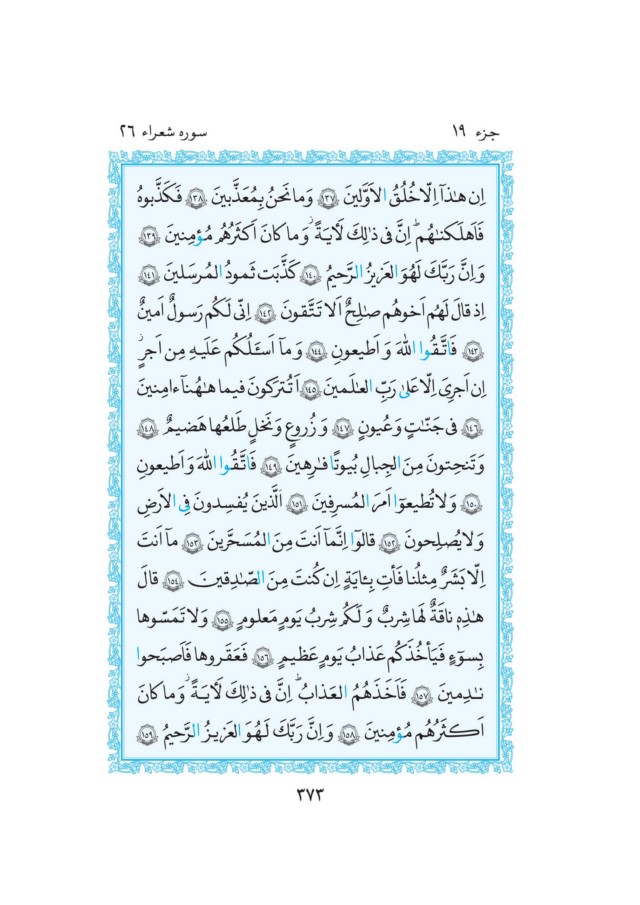 جزء ۱۹
سوره شعراء ۲۶
اِن هٰذَآ اِلّا خُلُقُ الاَوَّلينَ ۝۱۳۷ وَ ما نَحنُ بِمُعَذَّبينَ ۝۱۳۸ فَكَذَّبوهُ
فَاَهلَكنٰهُم ۗ اِنَّ فى ذٰلِكَ لَأٓيَةً ۖ وَ ما كانَ اَكثَرُهُم مُؤمِنينَ ۝۱۳۹
وَ اِنَّ رَبَّكَ لَهُوَ العَزيزُ الرَّحيمُ ۝۱۴۰ كَذَّبَت ثَمودُ المُرسَلينَ ۝۱۴۱
اِذ قالَ لَهُم اَخوهُم صٰلِحٌ اَلا تَتَّقونَ ۝۱۴۲ اِنّى لَكُم رَسولٌ اَمينٌ
۝۱۴۳ فَاتَّقُوا اللهَ وَ اَطيعونِ ۝۱۴۴ وَ مآ اَسئَلُكُم عَلَيهِ مِن اَجرٍ ۖ
اِن اَجرِىَ اِلّا عَلىٰ رَبِّ العٰلَمينَ ۝۱۴۵ اَتُترَكونَ فيما هٰهُنآ ءامِنينَ
۝۱۴۶ فى جَنّٰتٍ وَ عُيونٍ ۝۱۴۷ وَ زُروعٍ وَ نَخلٍ طَلعُها هَضيمٌ ۝۱۴۸
وَ تَنحِتونَ مِنَ الجِبالِ بُيوتًا فٰرِهينَ ۝۱۴۹ فَاتَّقُوا اللهَ وَ اَطيعونِ
۝۱۵۰ وَ لا تُطيعوٓا اَمرَ المُسرِفينَ ۝۱۵۱ اَلَّذينَ يُفسِدونَ فِى الاَرضِ
وَ لا يُصلِحونَ ۝۱۵۲ قالوٓا اِنَّمآ اَنتَ مِنَ المُسَحَّرينَ ۝۱۵۳ مآ اَنتَ
اِلّا بَشَرٌ مِثلُنا فَأتِ بِـٔايَةٍ اِن كُنتَ مِنَ الصّٰدِقينَ ۝۱۵۴ قالَ
هٰذِهٖ ناقَةٌ لَها شِربٌ وَ لَكُم شِربُ يَومٍ مَعلومٍ ۝۱۵۵ وَ لا تَمَسّوها
بِسوٓءٍ فَيَأخُذَكُم عَذابُ يَومٍ عَظيمٍ ۝۱۵۶ فَعَقَروها فَاَصبَحوا
نٰدِمينَ ۝۱۵۷ فَاَخَذَهُمُ العَذابُ ۗ اِنَّ فى ذٰلِكَ لَأٓيَةً ۖ وَ ما كانَ
اَكثَرُهُم مُؤمِنينَ ۝۱۵۸ وَ اِنَّ رَبَّكَ لَهُوَ العَزيزُ الرَّحيمُ ۝۱۵۹
۳۷۳